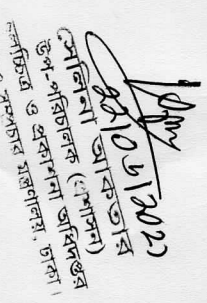 ২২/০৬/২০২১
সেলিনা আকতার
উপ-পরিচালক (প্রশাসন)
চলচ্চিত্র ও প্রকাশনা অধিদপ্তর
মন্ত্রণালয়, ঢাকা।